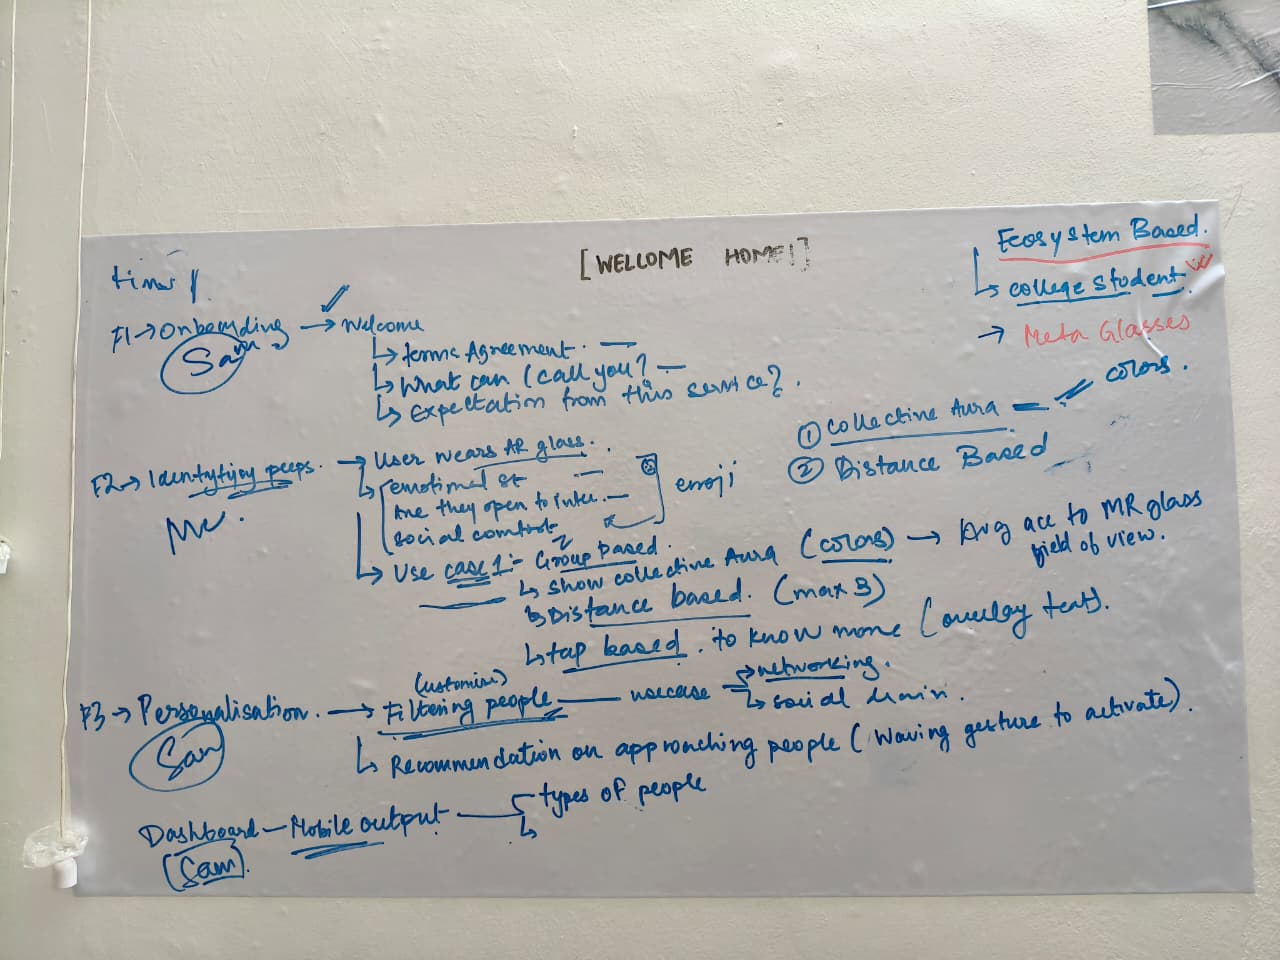 [WELLOME HOME!]
Ecosystem Based.
↳ college student
→ Meta Glasses
F1 → Onboarding → Welcome
Sam
↳ terms Agreement.
↳ What can I call you?
↳ Expectation from this service?
① Collective Aura — colors.
② Distance Based
F2 → Identytijy peeps. → User wears AR glass.
Me.
↳ emotional st
Are they open to inter.
social comfort
emoji
↳ Use case 1:- Group based.
↳ show collective Aura (colors) → Avg acc to MR glass field of view.
↳ Distance based. (max 3)
↳ tap based. to know more (overlay text).
F3 → Personalisation. → Filtering people — usecase → networking.
(customise)
Sam
↳ social
↳ Recommendation on approaching people (Waving gesture to activate).
Dashboard — Mobile output — types of people
↳
[Sam].